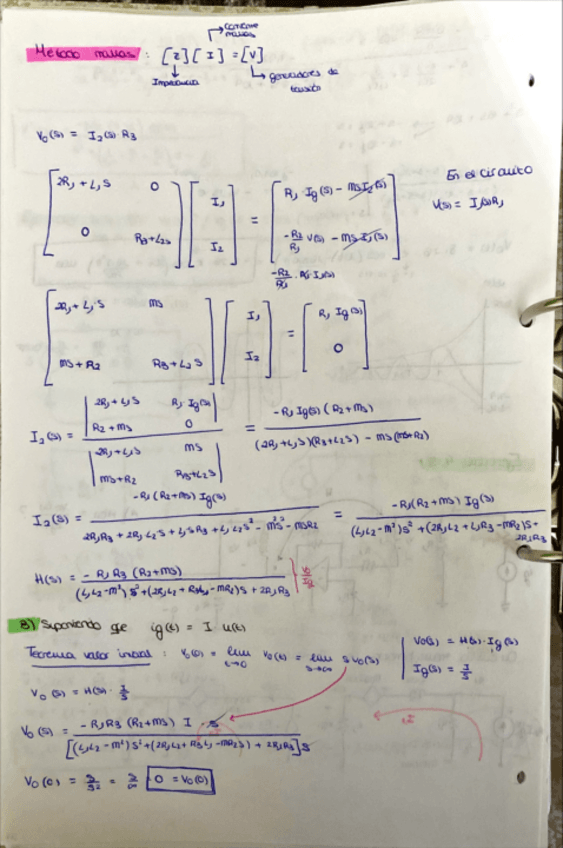 → corriente mallas
Método mallas : [Z][I] = [V]
Impedancia → generadores de tensión
V₀(s) = I₂(s) R₃
[2R₁ + L₁s 0] [I₁] = [R₁ Ig(s) - Ms I₂(s)]
[0 R₃+L₂s] [I₂] [-R₂/R₁ V(s) - Ms I₁(s)]
-R₂/R₁ · R₁ · I₁(s)
En el circuito
V(s) = I₁(s)R₁
[2R₁ + L₁·s Ms] [I₁] = [R₁ Ig(s)]
[Ms + R₂ R₃ + L₂ s] [I₂] [0]
I₂(s) = |2R₁ + L₁s R₁·Ig(s); R₂ + Ms 0| / |2R₁ + L₁s Ms; Ms+R₂ R₃+L₂s| = -R₁ Ig(s) (R₂ + Ms) / (2R₁ + L₁s)(R₃+L₂s) - Ms(Ms+R₂)
I₂(s) = -R₁ (R₂ + Ms) Ig(s) / 2R₁R₃ + 2R₁L₂s + L₁sR₃ + L₁L₂s² - M²s² - MsR₂ = -R₁(R₂ + Ms) Ig(s) / (L₁L₂ - M²)s² + (2R₁L₂ + L₁R₃ - MR₂)s + 2R₁R₃
H(s) = -R₁R₃ (R₂ + Ms) / (L₁L₂ - M²)s² + (2R₁L₂ + R₃L₁ - MR₂)s + 2R₁R₃
B) Suponiendo que ig(t) = I u(t)
Teorema valor inicial : V₀(0) = lim t→0 V₀(t) = lim s→∞ s V₀(s)
V₀(s) = H(s)·Ig(s)
Ig(s) = I/s
V₀(s) = H(s) · I/s
V₀(s) = -R₁R₃ (R₂ + Ms) I · s / [(L₁L₂ - M²)s² + (2R₁L₂ + R₃L₁ - MR₂s) + 2R₁R₃] s
V₀(0) = s/s² = s/∞ = 0 = V₀(0)